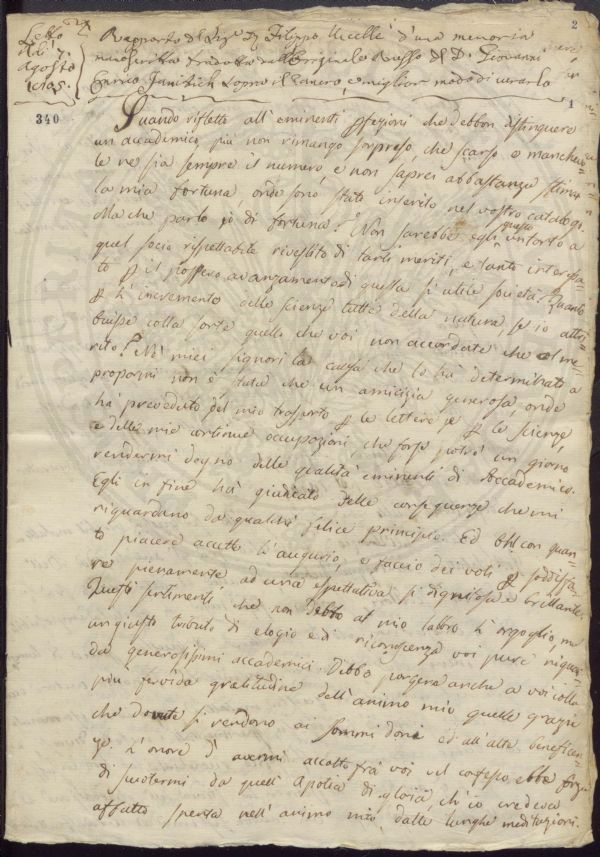 2
Letto
il dì 7.
Agosto
1805.
Rapporto del Sig.r D.r Filippo Uccelli d'una memoria
manoscritta tradotta dall'Originale Russo del D. Giovanni
Enrico Janitsch sopra il Cancro, e miglior modo di curarlo
1
340
Quando rifletto all'eminenti pfezioni che debbon distinguere
un accademico, più non rimango sorpreso, che scarso e manche-
le ne sia sempre il numero, e non saprei abbastanza stimar
la mia fortuna, onde sono stato inserito nel vostro catalogo.
Ma che parlo io di fortuna? Non sarebbe egli questo un torto a
quel socio rispettabile rivestito di tanti meriti, e tanto interessa-
to p il possesso avanzamento di questa sì utile società? Quanto
p l'incremento delle scienze tutte della natura, se io attri-
buisse colla sorte quello che voi non accordate che al me-
rito? Nò miei signori la causa che lo ha determinato a
propormi non è stata che un amicizia generosa, onde
ha preveduto del mio trasporto p le lettere, e p le scienze,
e dalle mie continue occupazioni, che forse potrò un giorno
rendermi degno delle qualità eminenti di Accademico.
Egli in fine ha giudicato delle conseguenze che mi
riguardano da qualche felice principio. Ed oh! con quan-
to piacere accetto l'augurio, e faccio dei voti p soddisfa-
re pienamente ad una espettativa sì dignitosa e brillante.
Questi sentimenti che non debbo al mio labbro l'orgoglio, ma
un giusto tributo di elogio e di riconoscenza voi pure
da generosissimi accademici. Debbo porgere anche a voi colla
più fervida gratitudine dell'animo mio quelle grazie
che dovute si rendono ai sommi doni ed all'alte beneficen-
ze. L'onore d'avermi accolto frà voi nel consesso ebbe forza
di scuotermi da quell'Apatia di gloria, ch'io credeva
affatto spenta nell'animo mio, dalle lunghe meditazioni.